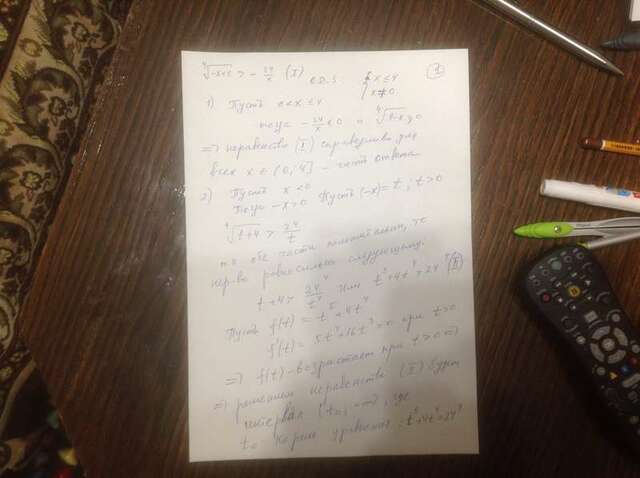 ⁴√-x+4 > - 24/x (I) О.Д.З: { x ≤ 4 (1)
x ≠ 0
1) Пусть 0 < x ≤ 4
тогда - 24/x < 0 и ⁴√4-x ≥ 0
=> неравенство (I) справедливо для
всех x ∈ (0; 4] - часть ответа
2) Пусть x < 0
тогда -x > 0 Пусть (-x) = t, t > 0
⁴√t+4 > 24/t
т.к обе части положительны, то
нер-во равносильно следующему:
t + 4 > 24⁴/t⁴ или t⁵ + 4t⁴ > 24⁴ (II)
Пусть f(t) = t⁵ + 4t⁴
f'(t) = 5t⁴ + 16t³ > 0 при t > 0
=> f(t) - возрастает при t > 0 =>
=> решением неравенства (II) будет
интервал (t₀; ∞), где
t₀ - корень уравнения: t⁵ + 4t⁴ = 24⁴